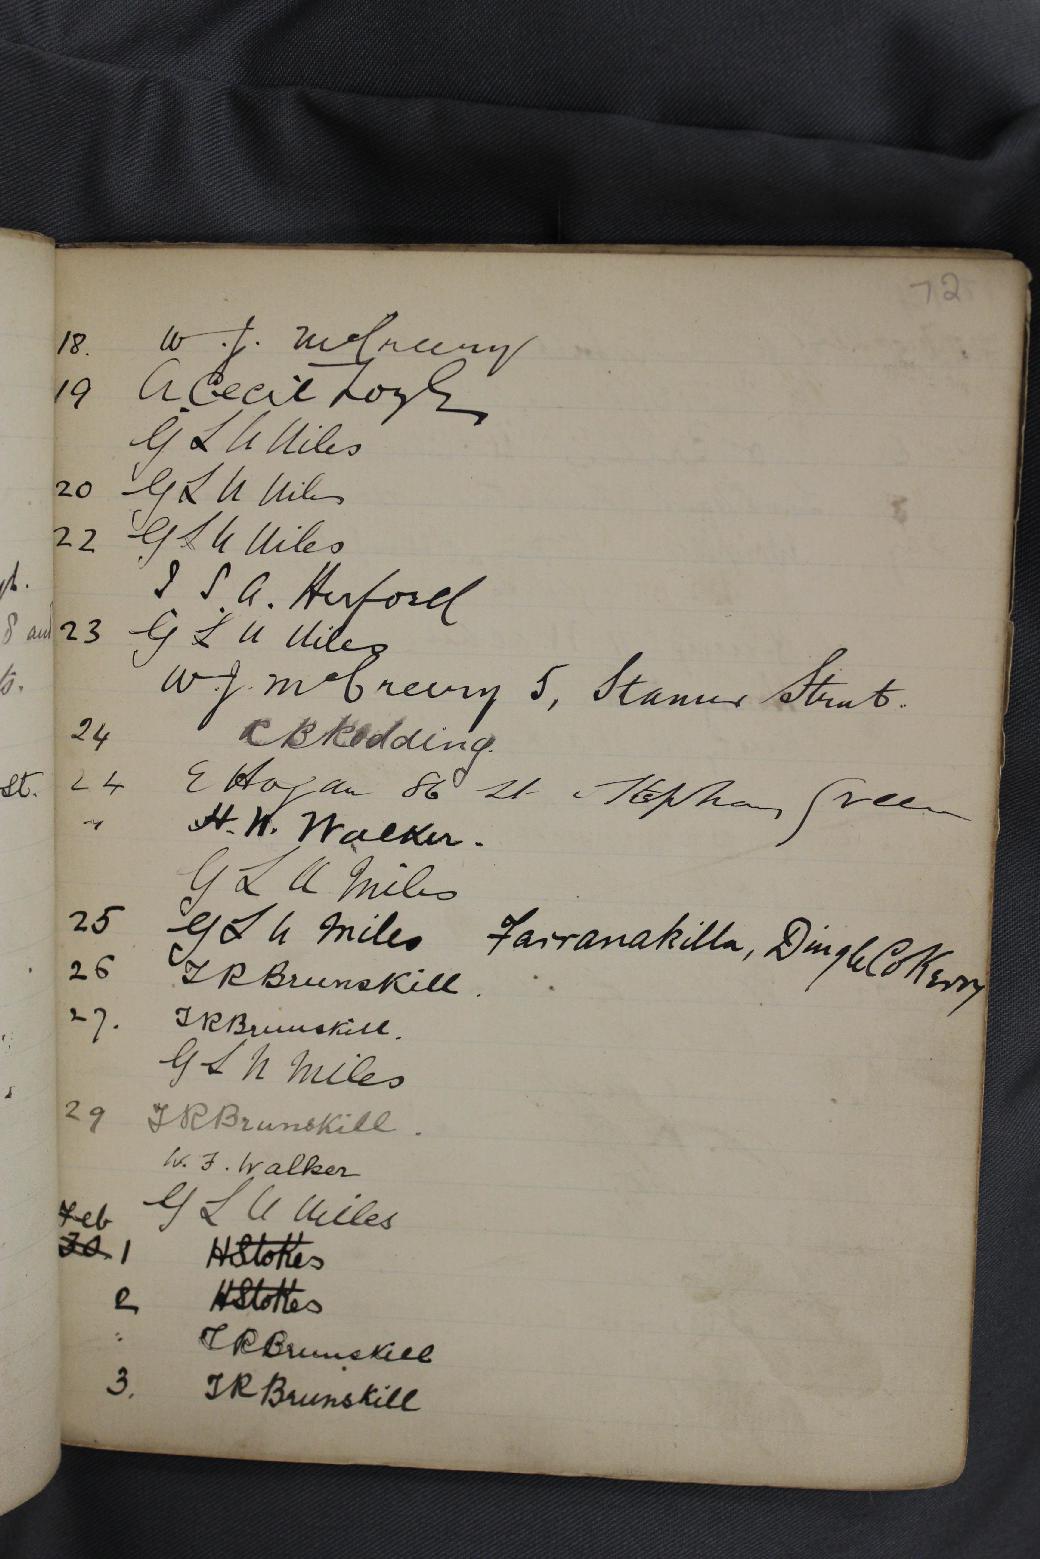 72
18. W. J. McCreery
19 A. Cecil
G L N Miles
20 G L N Miles
22 G L N Miles
I S. A. Herford
23 G L N Miles
W. J. McCreery 5, Stamer Street.
24 C B Redding
24 E Hogan 86 St Stephens Green
" H. N. Walker.
G L N Miles
25 G L N Miles Farranakilla, Dingle Co Kerry
26 T R Brunskill.
27. T R Brunskill.
G L N Miles
29 T R Brunskill.
W. F. Walker
G L N Miles
Feb
30 1 H Stokes
2 H Stokes
" T R Brunskill
3. T R Brunskill
8 and
st.